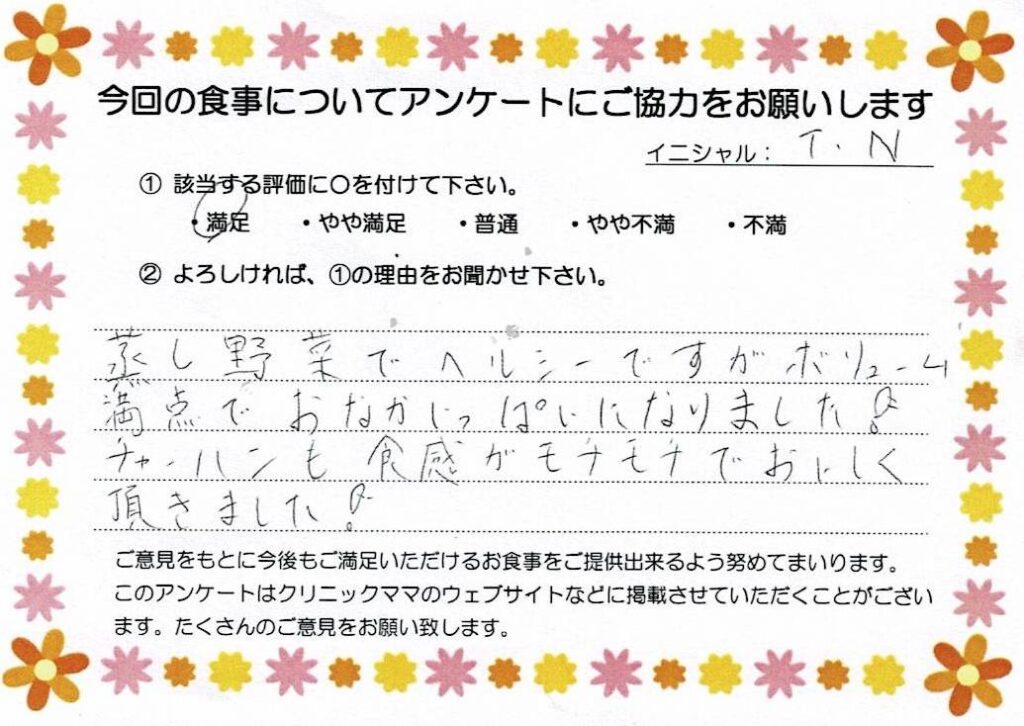 今回の食事についてアンケートにご協力をお願いします
イニシャル： T. N
① 該当する評価に〇を付けて下さい。
・満足 ・やや満足 ・普通 ・やや不満 ・不満
② よろしければ、①の理由をお聞かせ下さい。
蒸し野菜でヘルシーですがボリューム
満点でおなかいっぱいになりました!
チャーハンも食感がモチモチでおいしく
頂きました!
ご意見をもとに今後もご満足いただけるお食事をご提供出来るよう努めてまいります。
このアンケートはクリニックママのウェブサイトなどに掲載させていただくことがござい
ます。たくさんのご意見をお願い致します。